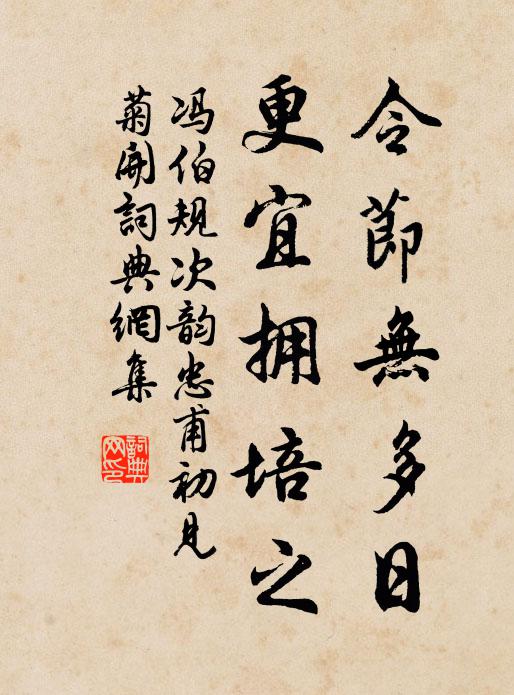 令節無多日
更宜拥培之
冯伯規次韵忠甫初見
菊開詞典網集
詞典
网印